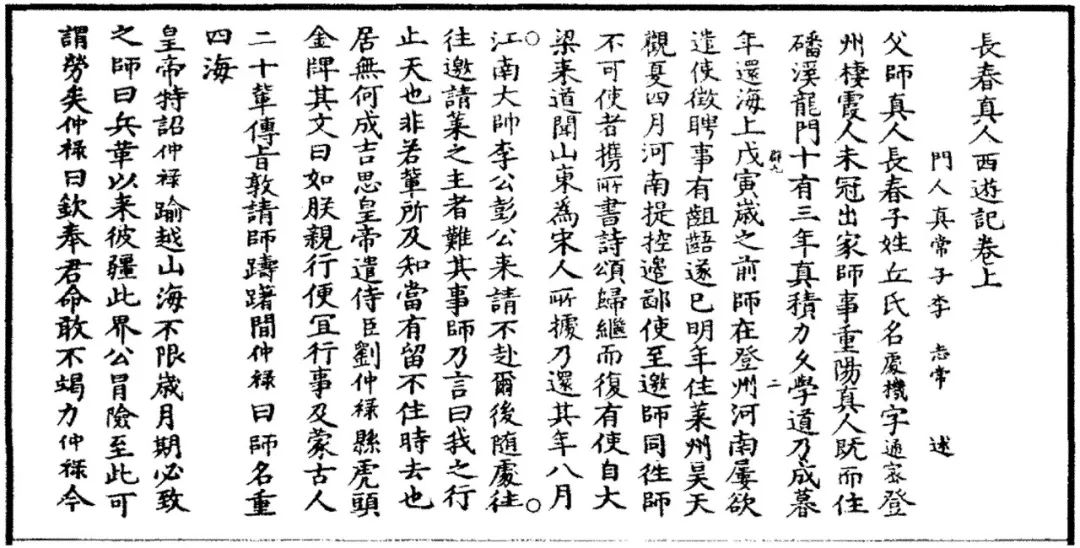 長春真人西遊記卷上
門人真常子李 志常 述
父師真人長春子姓丘氏名處機字通密登
州棲霞人未冠出家師事重陽真人既而住
磻溪龍門十有三年真積力久學道乃成暮
群九 二
年還海上戊寅歲之前師在登州河南屢欲
遣使徵聘事有齟齬遂已明年住萊州昊天
觀夏四月河南提控邊鄙使至邀師同往師
不可使者攜所書詩頌歸繼而復有使自大
梁来道聞山東為宋人所據乃還其年八月
江南大帥李公彭公来請不赴爾後隨處往
往邀請萊之主者難其事師乃言曰我之行
止天也非若輩所及知當有留不住時去也
居無何成吉思皇帝遣侍臣劉仲祿縣虎頭
金牌其文曰如朕親行便宜行事及蒙古人
二十輩傳旨敦請師躊躇間仲祿曰師名重
四海
皇帝特詔仲祿踰越山海不限歲月期必致
之師曰兵革以来彼疆此界公冒險至此可
謂勞矣仲祿曰欽奉君命敢不竭力仲祿今